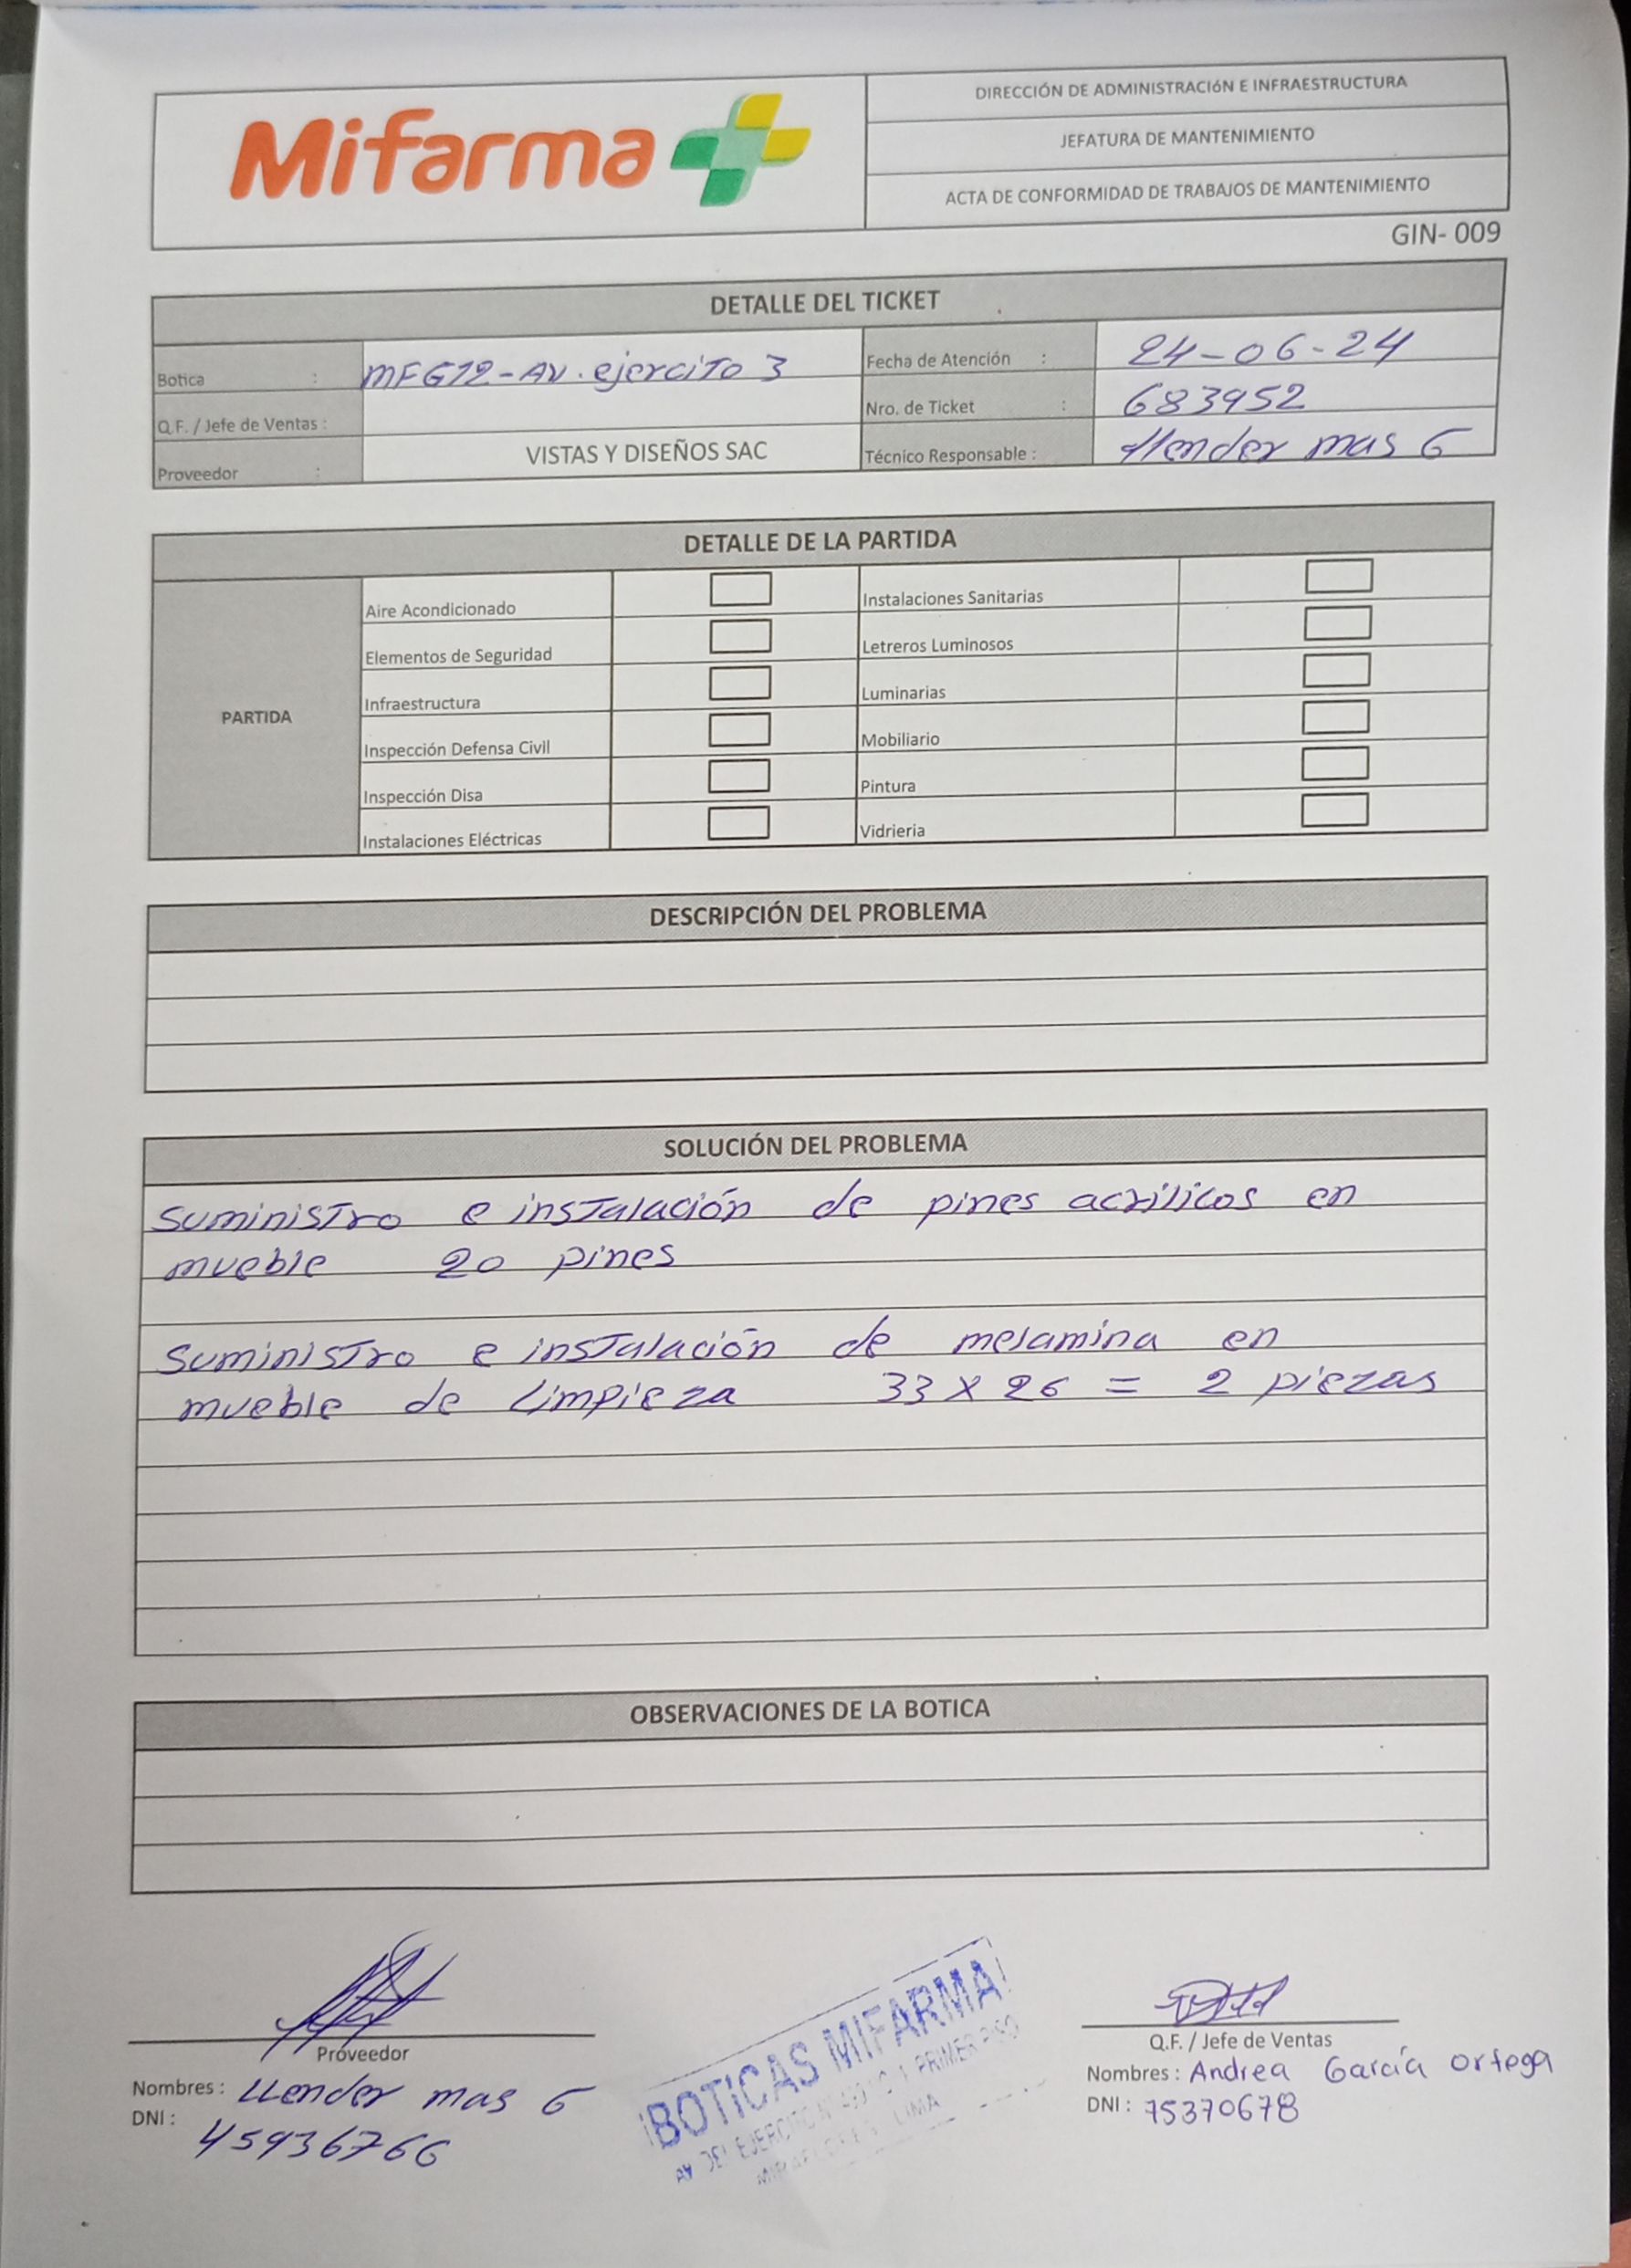 Mifarma
DIRECCIÓN DE ADMINISTRACIÓN E INFRAESTRUCTURA
JEFATURA DE MANTENIMIENTO
ACTA DE CONFORMIDAD DE TRABAJOS DE MANTENIMIENTO
GIN- 009
DETALLE DEL TICKET
Botica : MFG12-AV. ejercito 3
Fecha de Atención : 24-06-24
Q.F. / Jefe de Ventas :
Nro. de Ticket : 683952
Proveedor : VISTAS Y DISEÑOS SAC
Técnico Responsable : Llender mas G
DETALLE DE LA PARTIDA
PARTIDA
Aire Acondicionado
Instalaciones Sanitarias
Elementos de Seguridad
Letreros Luminosos
Infraestructura
Luminarias
Inspección Defensa Civil
Mobiliario
Inspección Disa
Pintura
Instalaciones Eléctricas
Vidrieria
DESCRIPCIÓN DEL PROBLEMA
SOLUCIÓN DEL PROBLEMA
suministro e instalación de pines acrílicos en
mueble 20 pines
suministro e instalación de melamina en
mueble de Limpieza 33 x 26 = 2 piezas
OBSERVACIONES DE LA BOTICA
Proveedor
Nombres : Llender mas G
DNI : 45936766
BOTICAS MIFARMA
AV DEL EJERCITO PRIMER PISO
LIMA
Q.F. / Jefe de Ventas
Nombres : Andrea García Ortega
DNI : 75370678